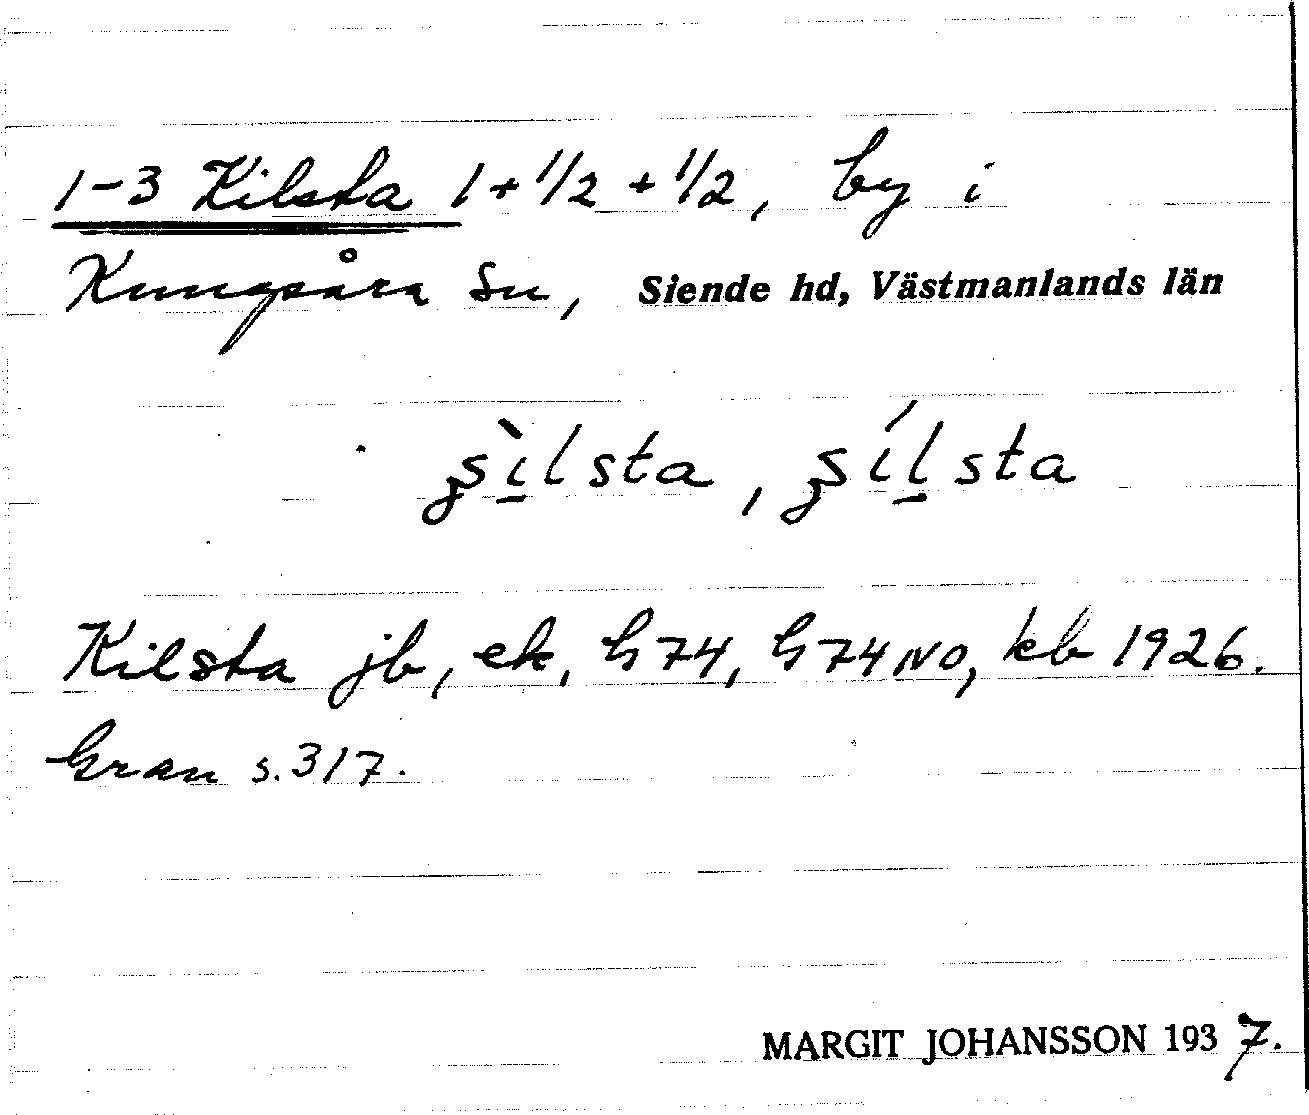 1-3 Kilsta 1+1/2+1/2, by i
Kungsåra sn, Siende hd, Västmanlands län
ʂìlsta, ʂílsta
Kilsta jb, ek, G74, G74NO, kb 1926.
Gran s.317.
MARGIT JOHANSSON 1937.